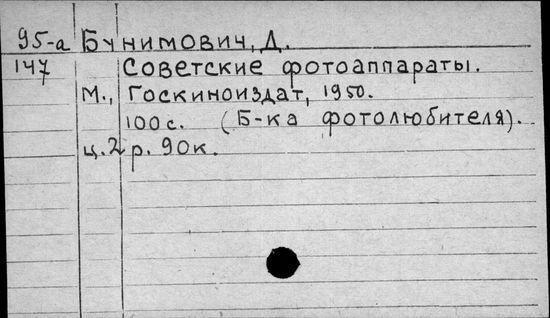 95-а Бунимович, Д.
147 Советские фотоаппараты.
М., Госкиноиздат, 1950.
100с. (Б-ка фотолюбителя).
ц. 2 р. 90к.